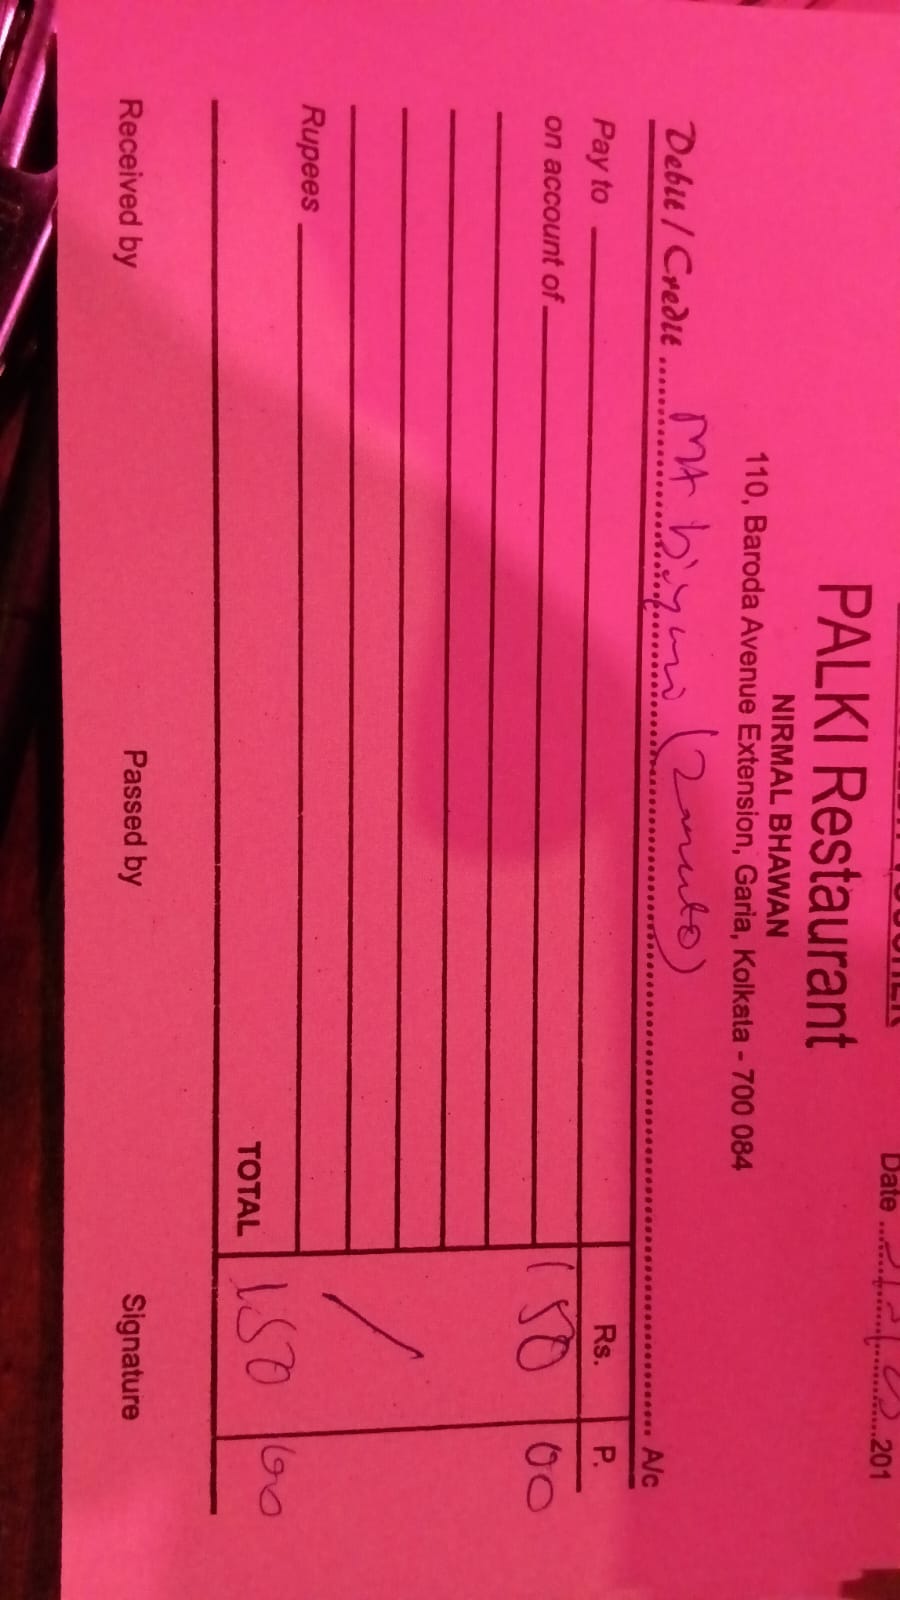 VOUCHER
Date 201
PALKI Restaurant
NIRMAL BHAWAN
110, Baroda Avenue Extension, Garia, Kolkata - 700 084
Debit / Credit (2 A/c
Pay to Rs. P.
on account of 150 00
Rupees
TOTAL 150 00
Received by Passed by Signature